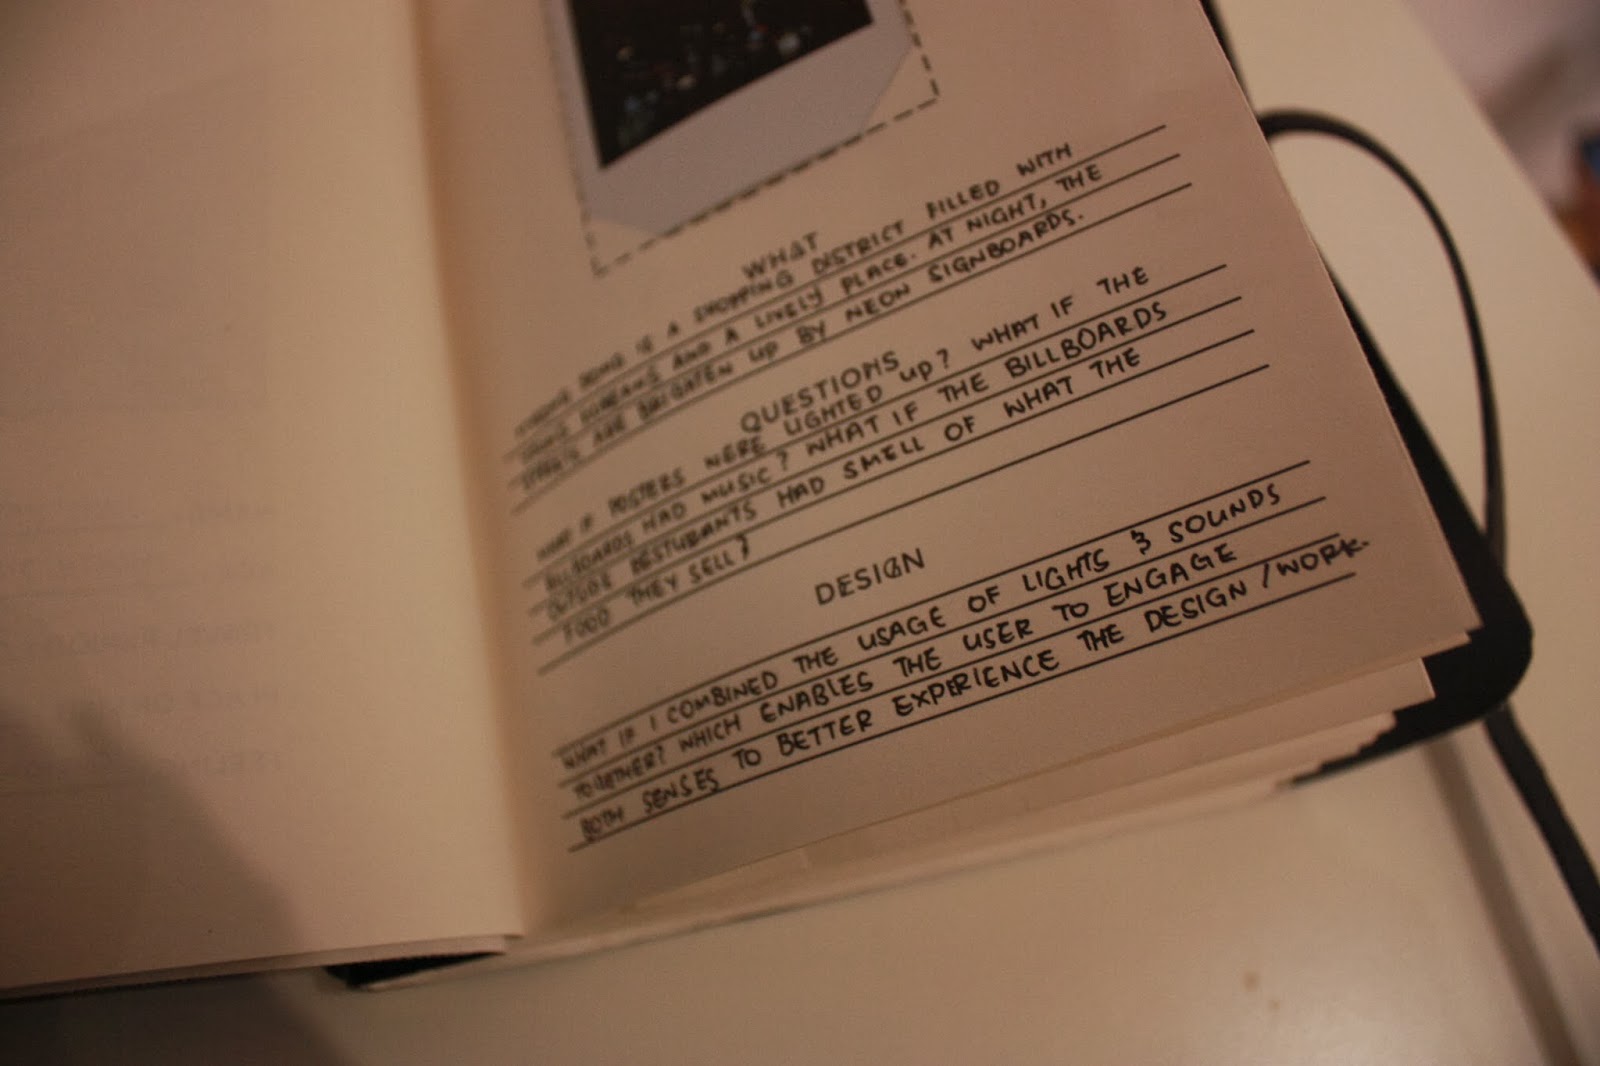 WHAT
DONG IS A SHOPPING DISTRICT FILLED WITH
SCREAMS AND A LIVELY PLACE. AT NIGHT, THE
STREETS ARE BRIGHTEN UP BY NEON SIGNBOARDS.
QUESTIONS
WHAT IF POSTERS WERE LIGHTED UP? WHAT IF THE
BILLBOARDS HAD MUSIC? WHAT IF THE BILLBOARDS
OUTSIDE RESTURANTS HAD SMELL OF WHAT THE
FOOD THEY SELL?
DESIGN
WHAT IF I COMBINED THE USAGE OF LIGHTS & SOUNDS
TOGETHER? WHICH ENABLES THE USER TO ENGAGE
BOTH SENSES TO BETTER EXPERIENCE THE DESIGN / WORK.